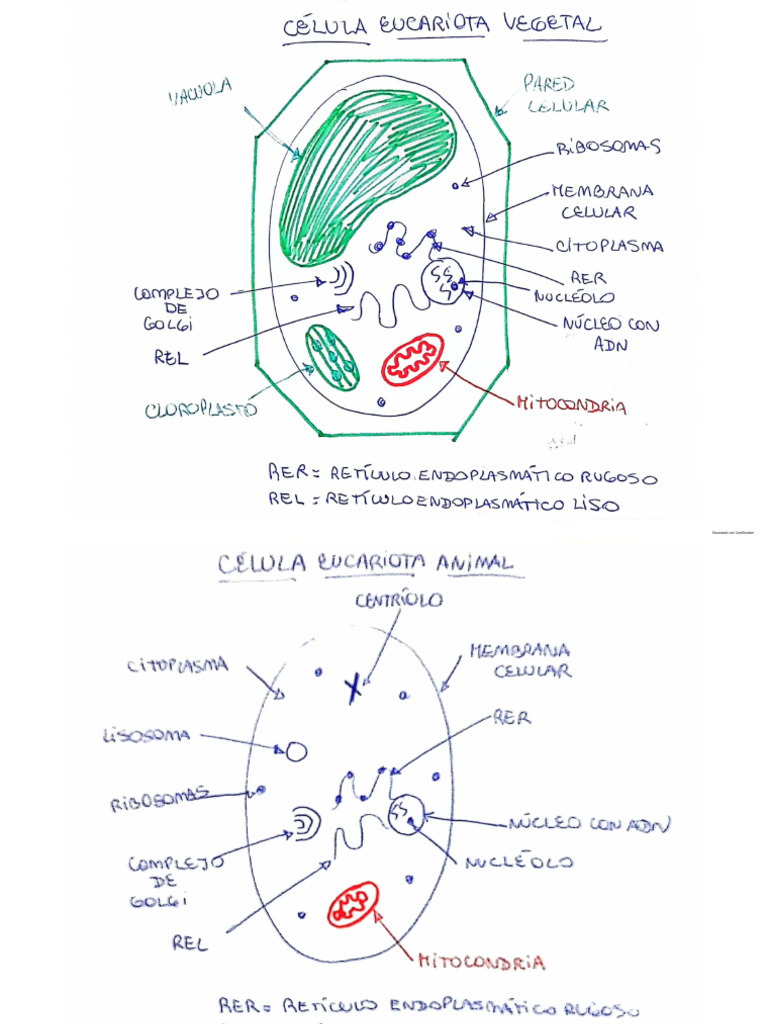 CÉLULA EUCARIOTA VEGETAL
VACUOLA
PARED
CELULAR
RIBOSOMAS
MEMBRANA
CELULAR
CITOPLASMA
RER
NUCLÉOLO
NÚCLEO CON
ADN
COMPLEJO
DE
GOLGI
REL
CLOROPLASTO
MITOCONDRIA
RER = RETÍCULO ENDOPLASMÁTICO RUGOSO
REL = RETÍCULO ENDOPLASMÁTICO LISO
Escaneado con CamScanner
CÉLULA EUCARIOTA ANIMAL
CENTRÍOLO
CITOPLASMA
MEMBRANA
CELULAR
RER
LISOSOMA
RIBOSOMAS
NÚCLEO CON ADN
NUCLÉOLO
COMPLEJO
DE
GOLGI
REL
MITOCONDRIA
RER = RETÍCULO ENDOPLASMÁTICO RUGOSO